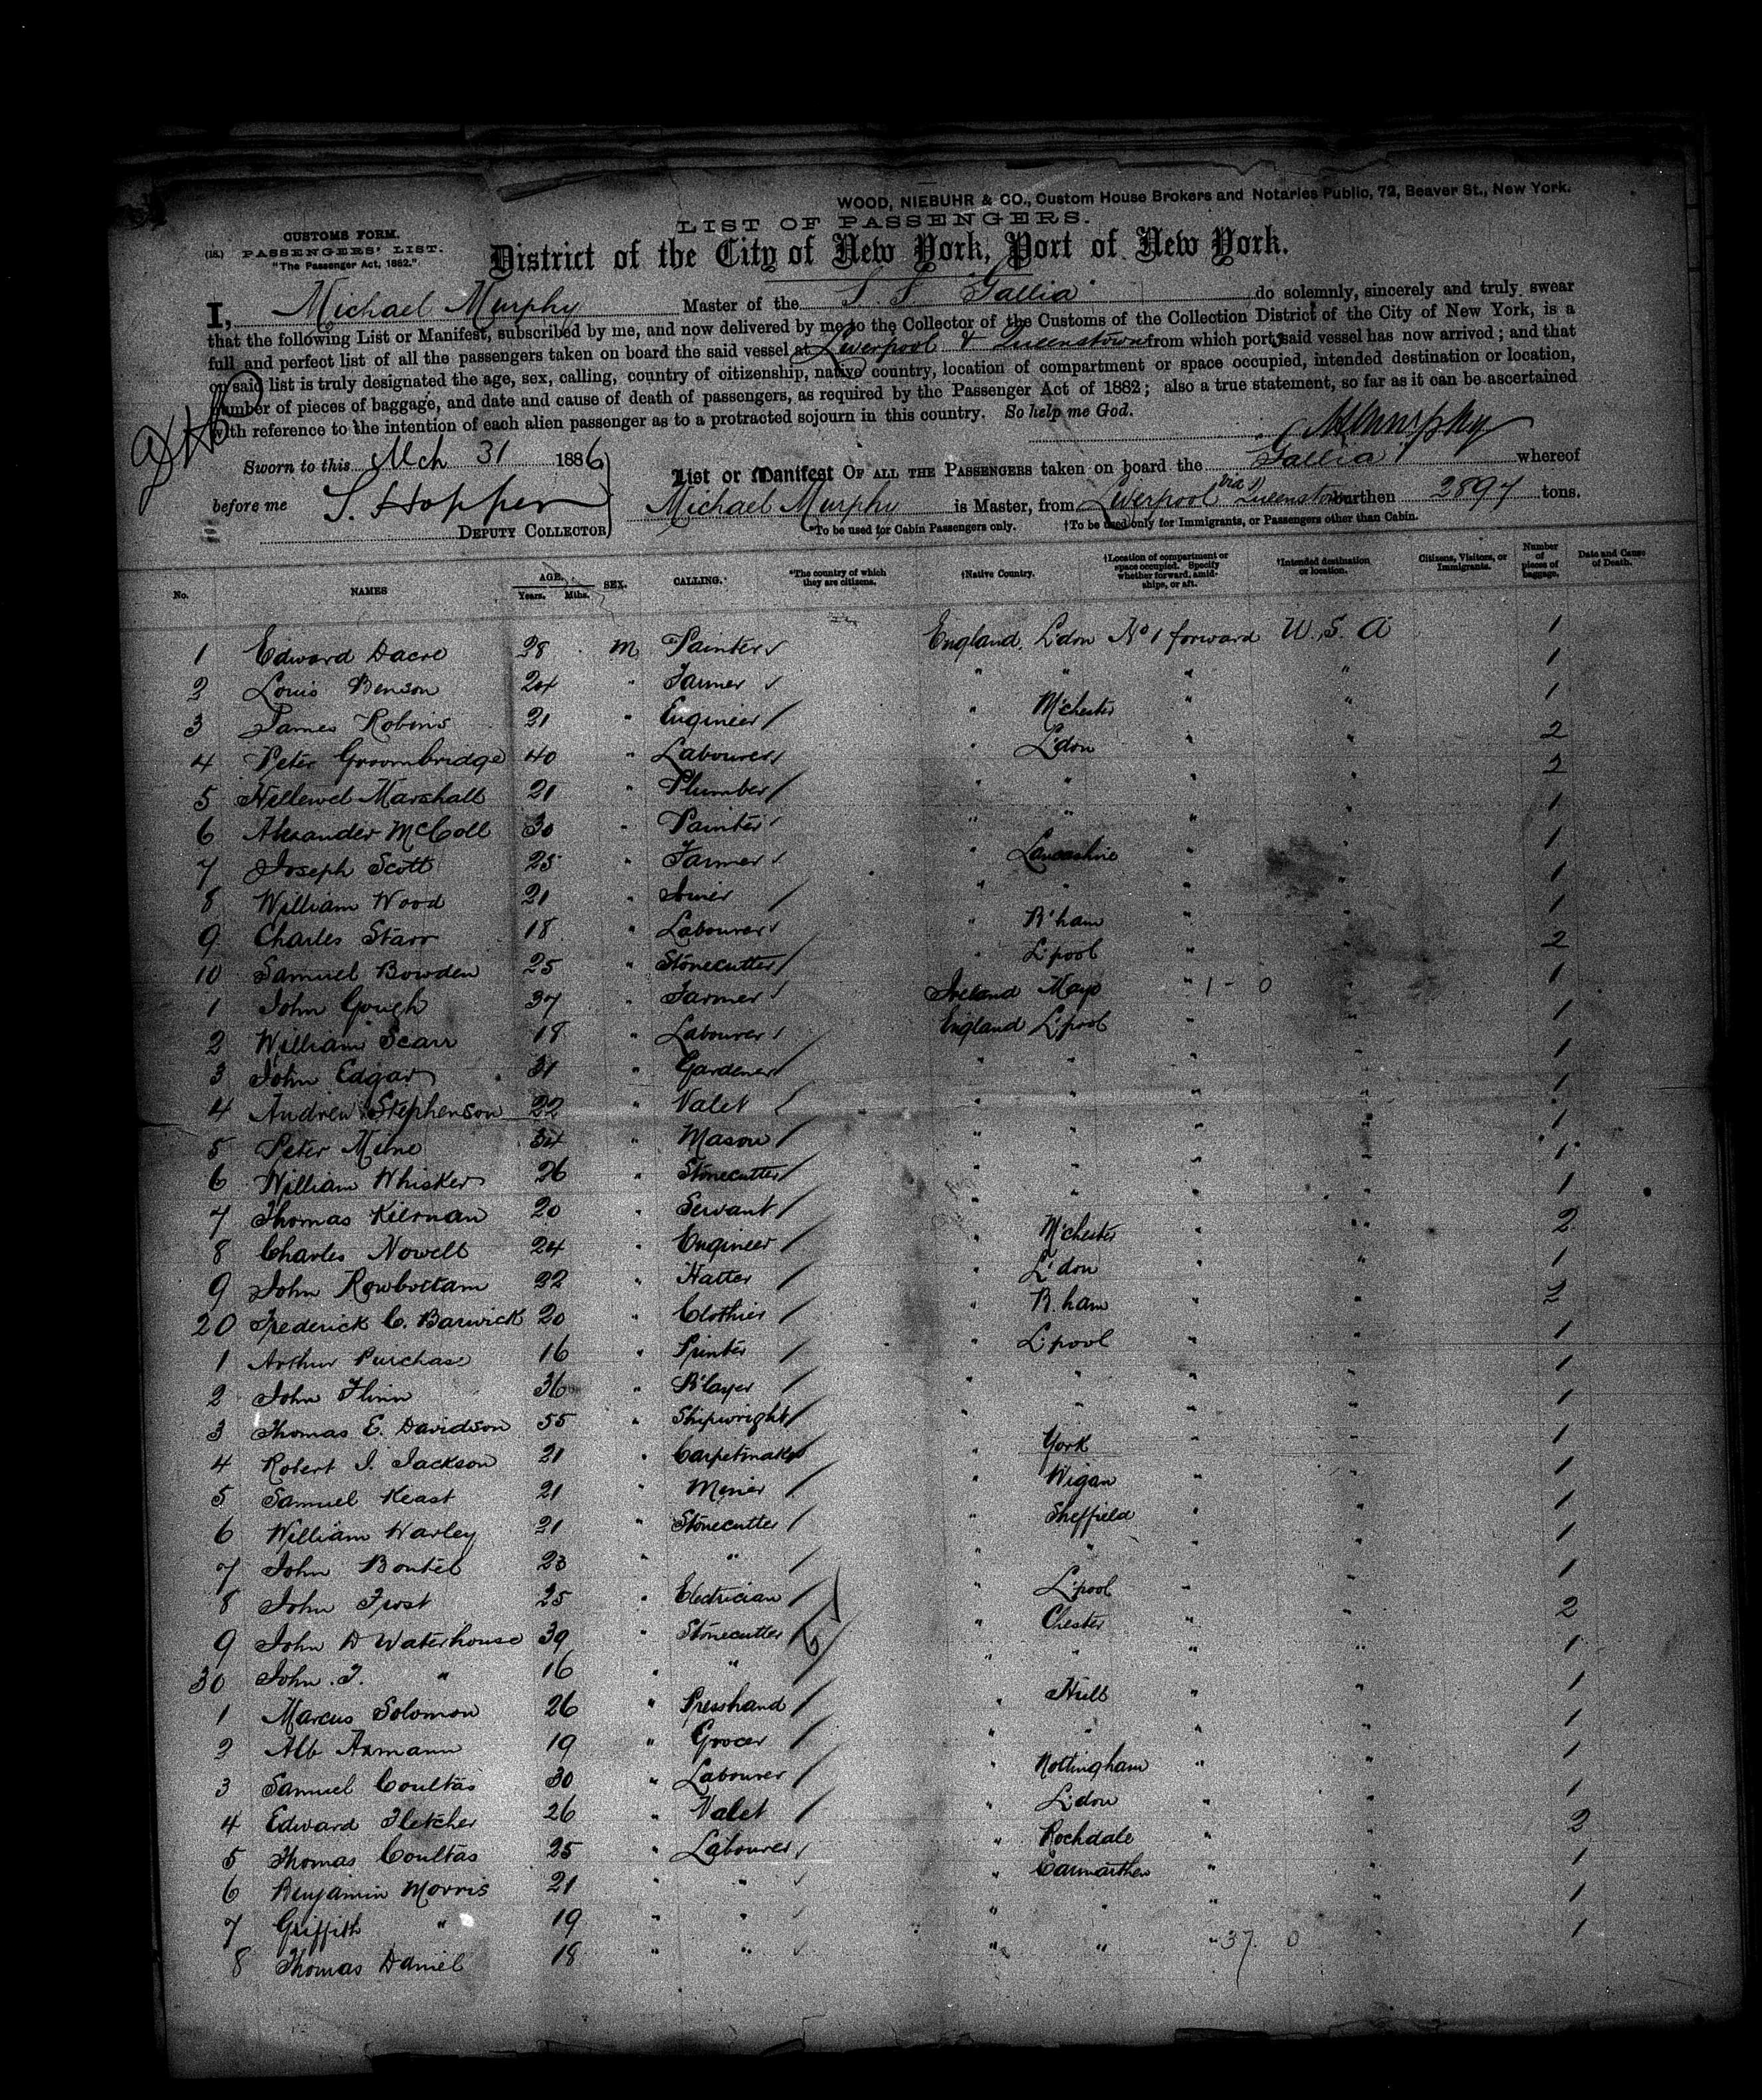 WOOD, NIEBUHR & CO., Custom House Brokers and Notaries Public, 72, Beaver St., New York.
LIST OF PASSENGERS.
CUSTOMS FORM.
(18.) PASSENGERS' LIST.
"The Passenger Act, 1882."
District of the City of New York, Port of New York.
I, Michael Murphy Master of the S. S. Gallia do solemnly, sincerely and truly swear
that the following List or Manifest, subscribed by me, and now delivered by me to the Collector of the Customs of the Collection District of the City of New York, is a
full and perfect list of all the passengers taken on board the said vessel at Liverpool & Queenstown from which port, said vessel has now arrived; and that
on said list is truly designated the age, sex, calling, country of citizenship, native country, location of compartment or space occupied, intended destination or location,
number of pieces of baggage, and date and cause of death of passengers, as required by the Passenger Act of 1882; also a true statement, so far as it can be ascertained
with reference to the intention of each alien passenger as to a protracted sojourn in this country. So help me God.
M Murphy
Sworn to this Mch 31 1886
List or Manifest OF ALL THE PASSENGERS taken on board the Gallia whereof
before me S. Hopper
Michael Murphy is Master, from Liverpool via Queenstown burthen 2897 tons.
DEPUTY COLLECTOR
*To be used for Cabin Passengers only. †To be used only for Immigrants, or Passengers other than Cabin.
No. NAMES AGE. Years. Mths. SEX. CALLING. *The country of which they are citizens. †Native Country. †Location of compartment or space occupied. Specify whether forward, amidships, or aft. †Intended destination or location. Citizens, Visitors, or Immigrants. Number of pieces of baggage. Date and Cause of Death.
1 Edward Dacre 28 M Painter England L'don No 1 forward U. S. A 1
2 Louis Benson 24 " Farmer " " " " 1
3 James Robins 21 " Engineer " M'chester " " 1
4 Peter Groombridge 40 " Labourer " L'don " " 2
5 Hellewel Marshall 21 " Plumber " " " " 2
6 Alexander McColl 30 " Painter " " " 1
7 Joseph Scott 25 " Farmer " Lancashire " 1
8 William Wood 21 " " " " " 1
9 Charles Starr 18 " Labourer " B'ham " 1
10 Samuel Bowden 25 " Stonecutter " L'pool " 2
1 John Gough 37 " Farmer Ireland Mayo " 1 - 0 " 1
2 William Scarr 18 " Labourer England L'pool " " 1
3 John Edgar 31 " Gardener " " " " 1
4 Andrew Stephenson 22 " Valet " " " " 1
5 Peter Milne 34 " Mason " " " " 1
6 William Whisker 26 " Stonecutter " " " " 1
7 Thomas Kiernan 20 " Servant " " " " 1
8 Charles Nowell 24 " Engineer " M'chester " " 2
9 John Rowbottam 22 " Hatter " L'don " " 1
20 Frederick C. Barwick 20 " Clothier " B.ham " " 2
1 Arthur Purchase 16 " Printer " L'pool " " 1
2 John Flinn 36 " B'layer " " " " 1
3 Thomas E. Davidson 55 " Shipwright " " " " 1
4 Robert J. Jackson 21 " Carpetmaker " York " " 1
5 Samuel Keast 21 " Miner " Wigan " " 1
6 William Warley 21 " Stonecutter " Sheffield " " 1
7 John Boutel 23 " " " " " " 1
8 John Frost 25 " Electrician " L'pool " " 1
9 John D Waterhouse 39 " Stonecutter " Chester " " 2
30 John. T. " 16 " " " " " " 1
1 Marcus Solomon 26 " Presshand " Hull " " 1
2 Alb Axmann 19 " Grocer " " " " 1
3 Samuel Coultas 30 " Labourer " Nottingham " " 1
4 Edward Fletcher 26 " Valet " L'don " " 1
5 Thomas Coultas 25 " Labourer " Rochdale " " 2
6 Benjamin Morris 21 " " " Carmarthen " " 1
7 Griffith " 19 " " " " " " 1
8 Thomas Daniel 18 " " " " " 37. 0 1